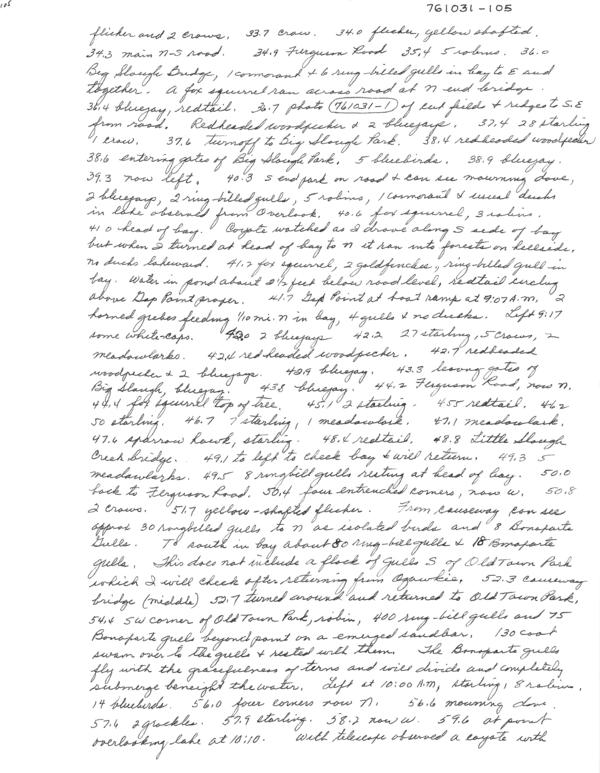 105
761031-105
flicker and 2 crows. 33.7 crow. 34.0 flicker, yellow shafted.
34.3 main N-S road. 34.9 Ferguson Road 35.4 5 robins. 36.0
Big Slough Bridge, 1 cormorant & 6 ring-billed gulls in bay to E and
together. A fox squirrel ran across road at N end bridge.
36.4 bluejay, redtail. 36.7 photo (761031-1) of cut fields & ridges to S.E
from road. Redheaded woodpecker & 2 bluejays. 37.4 28 starling
1 crow. 37.6 turnoff to Big Slough Park. 38.4 redheaded woodpecker
38.6 entering gates of Big Slough Park. 5 bluebirds. 38.9 bluejay.
39.3 now left. 40.3 S end park on road & can see mourning dove,
2 bluejays, 2 ring-billed gulls, 5 robins, 1 cormorant & usual ducks
in lake observed from Overlook. 40.6 fox squirrel, 3 robins.
41.0 head of bay. Coyote watched as I drove along S side of bay
but when I turned at head of bay to N it ran into forest on hillside.
no ducks lakeward. 41.2 fox squirrel, 2 goldfinches, ring-billed gull in
bay. Water in pond about 2 1/2 feet below road level, redtail circling
above Gap Point proper. 41.7 Gap Point at boat ramp at 9:07 A.M. 2
horned grebes feeding 1/10 mi. N in bay, 4 gulls & no ducks. Left 9:17
some white-caps. 42.0 2 bluejays 42.2 27 starling, 5 crows, 2
meadowlarks. 42.4 redheaded woodpecker. 42.7 redheaded
woodpecker & 2 bluejays. 42.9 bluejay. 43.3 leaving gates of
Big Slough, bluejay. 43.8 bluejay. 44.2 Ferguson Road, now N.
44.4 fox squirrel top of tree. 45.1 2 starling. 45.5 redtail. 46.2
50 starling. 46.7 7 starling, 1 meadowlark. 47.1 meadowlark.
47.6 sparrow hawk, starling. 48.4 redtail. 48.8 Little Slough
Creek bridge. 49.1 to left to check bay & will return. 49.3 5
meadowlarks. 49.5 8 ringbill gulls resting at head of bay. 50.0
back to Ferguson Road. 50.4 four entrenched corners, now W. 50.8
2 crows. 51.7 yellow-shafted flicker. From causeway can see
approx 30 ringbilled gulls to N as isolated birds and 8 Bonaparte
Gulls. To south in bay about 80 ring-bill gulls & 18 Bonaparte
gulls. This does not include a flock of Gulls S of Old Town Park
which I will check after returning from Ozawkie. 52.3 causeway
bridge (middle) 52.7 turned around and returned to Old Town Park.
54.4 SW corner of Old Town Park, robin, 400 ring-bill gulls and 75
Bonaparte gulls beyond point on a emerged sandbar. 130 coot
swam over to the gulls & rested with them. The Bonaparte gulls
fly with the gracefulness of terns and will divide and completely
submerge beneight the water. Left at 10:00 A.M, starling, 8 robins,
14 bluebirds. 56.0 four corners now N. 56.6 mourning dove.
57.6 2 grackles. 57.9 starling. 58.2 now W. 59.6 at point
overlooking lake at 10:10. With telescope observed a coyote with